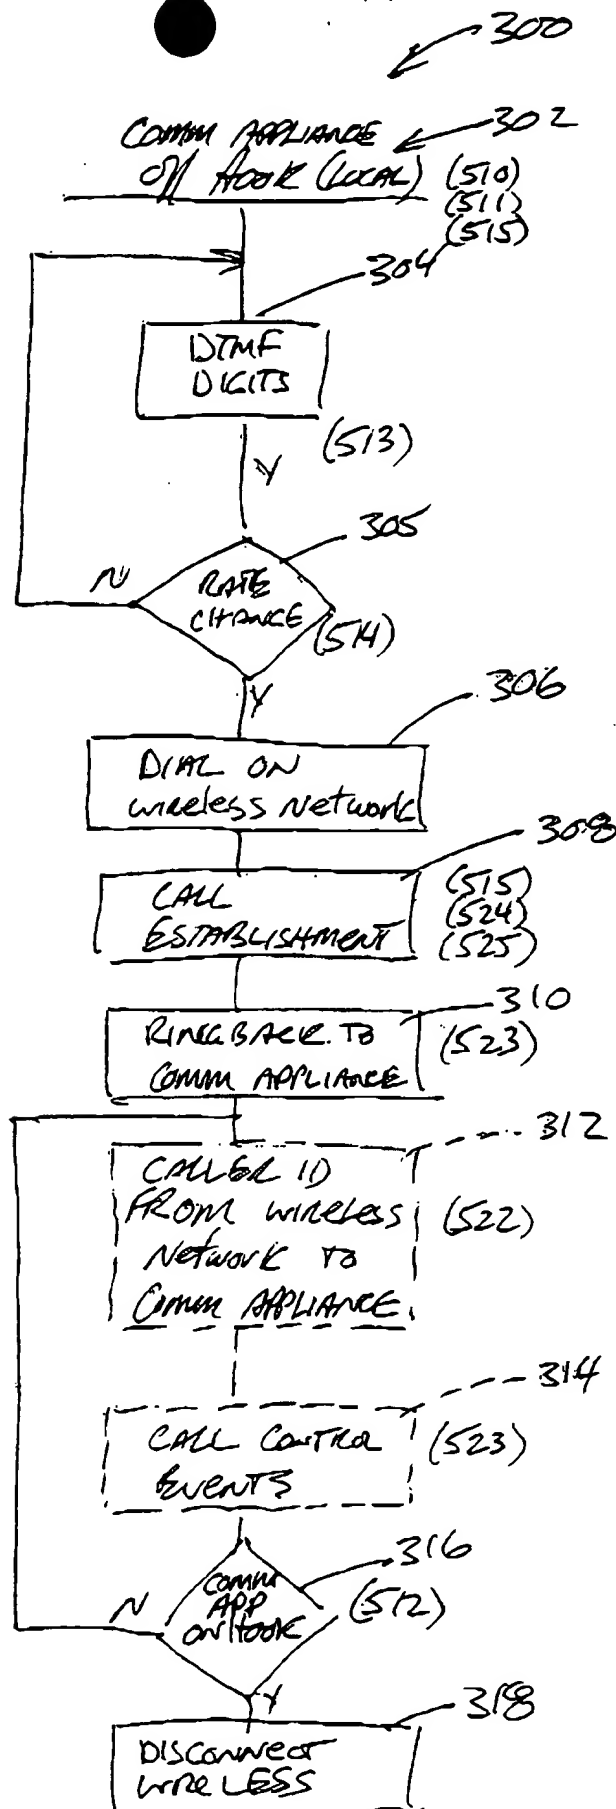 300
COMM APPLIANCE
302
Off Hook (LOCAL)
(510)
(511)
(515)
304
DTMF
DIGITS
(513)
Y
305
N
RATE
CHANGE
(514)
Y
306
DIAL ON
WIRELESS Network
308
CALL
ESTABLISHMENT
(515)
(524)
(525)
310
RINGBACK TO
COMM APPLIANCE
(523)
312
CALLER ID
FROM WIRELESS
Network TO
COMM APPLIANCE.
(522)
314
CALL CONTROL
EVENTS
(523)
316
COMM
APP
ON HOOK
N
(512)
Y
318
DISCONNECT
WIRELESS